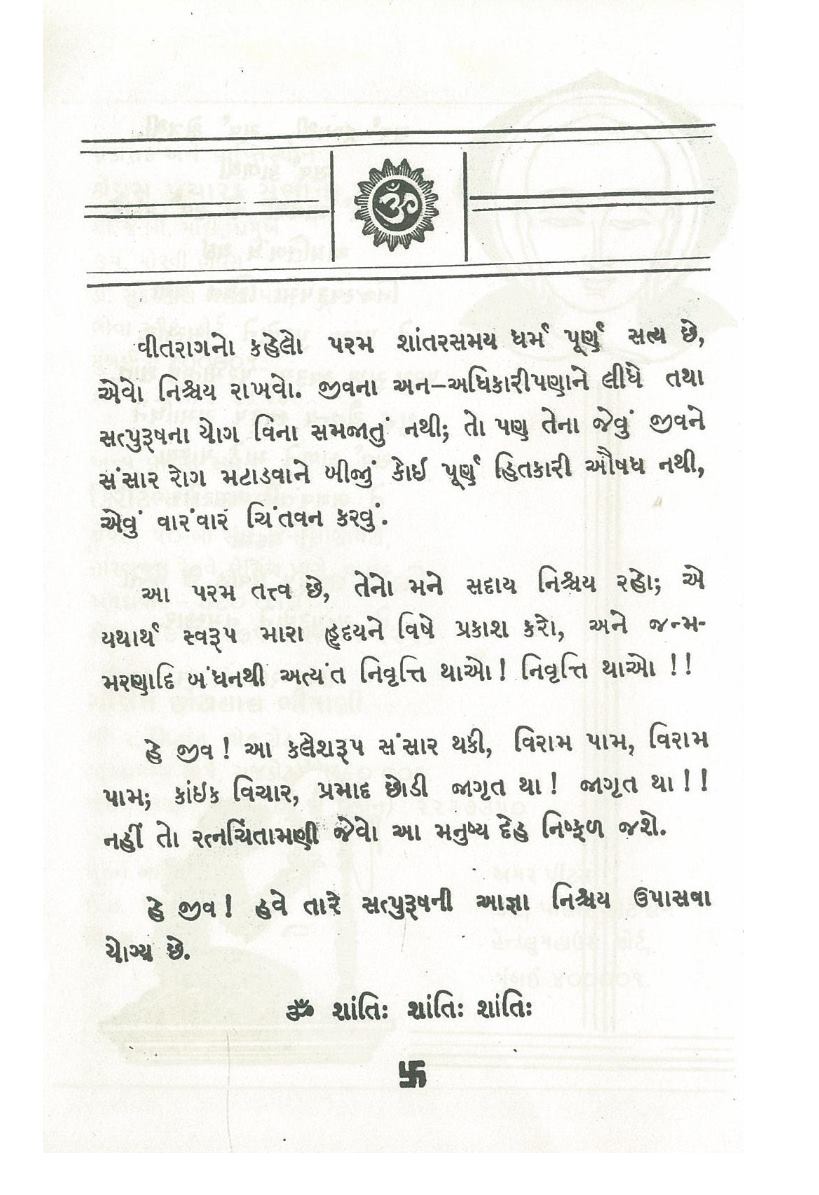 ૐ
વીતરાગનો કહેલો પરમ શાંતરસમય ધર્મ પૂર્ણ સત્ય છે,
એવો નિશ્ચય રાખવો. જીવના અન–અધિકારીપણાને લીધે તથા
સત્પુરૂષના યોગ વિના સમજાતું નથી; તો પણ તેના જેવું જીવને
સંસાર રોગ મટાડવાને બીજું કોઈ પૂર્ણ હિતકારી ઔષધ નથી,
એવું વારંવાર ચિંતવન કરવું.
આ પરમ તત્ત્વ છે, તેનો મને સદાય નિશ્ચય રહો; એ
યથાર્થ સ્વરૂપ મારા હૃદયને વિષે પ્રકાશ કરો, અને જન્મ-
મરણાદિ બંધનથી અત્યંત નિવૃત્તિ થાઓ! નિવૃત્તિ થાઓ !!
હે જીવ ! આ કલેશરૂપ સંસાર થકી, વિરામ પામ, વિરામ
પામ; કાંઇક વિચાર, પ્રમાદ છોડી જાગૃત થા! જાગૃત થા!!
નહીં તો રત્નચિંતામણી જેવો આ મનુષ્ય દેહ નિષ્ફળ જશે.
હે જીવ! હવે તારે સત્પુરૂષની આજ્ઞા નિશ્ચય ઉપાસવા
યોગ્ય છે.
ૐ શાંતિઃ શાંતિઃ શાંતિઃ
卐